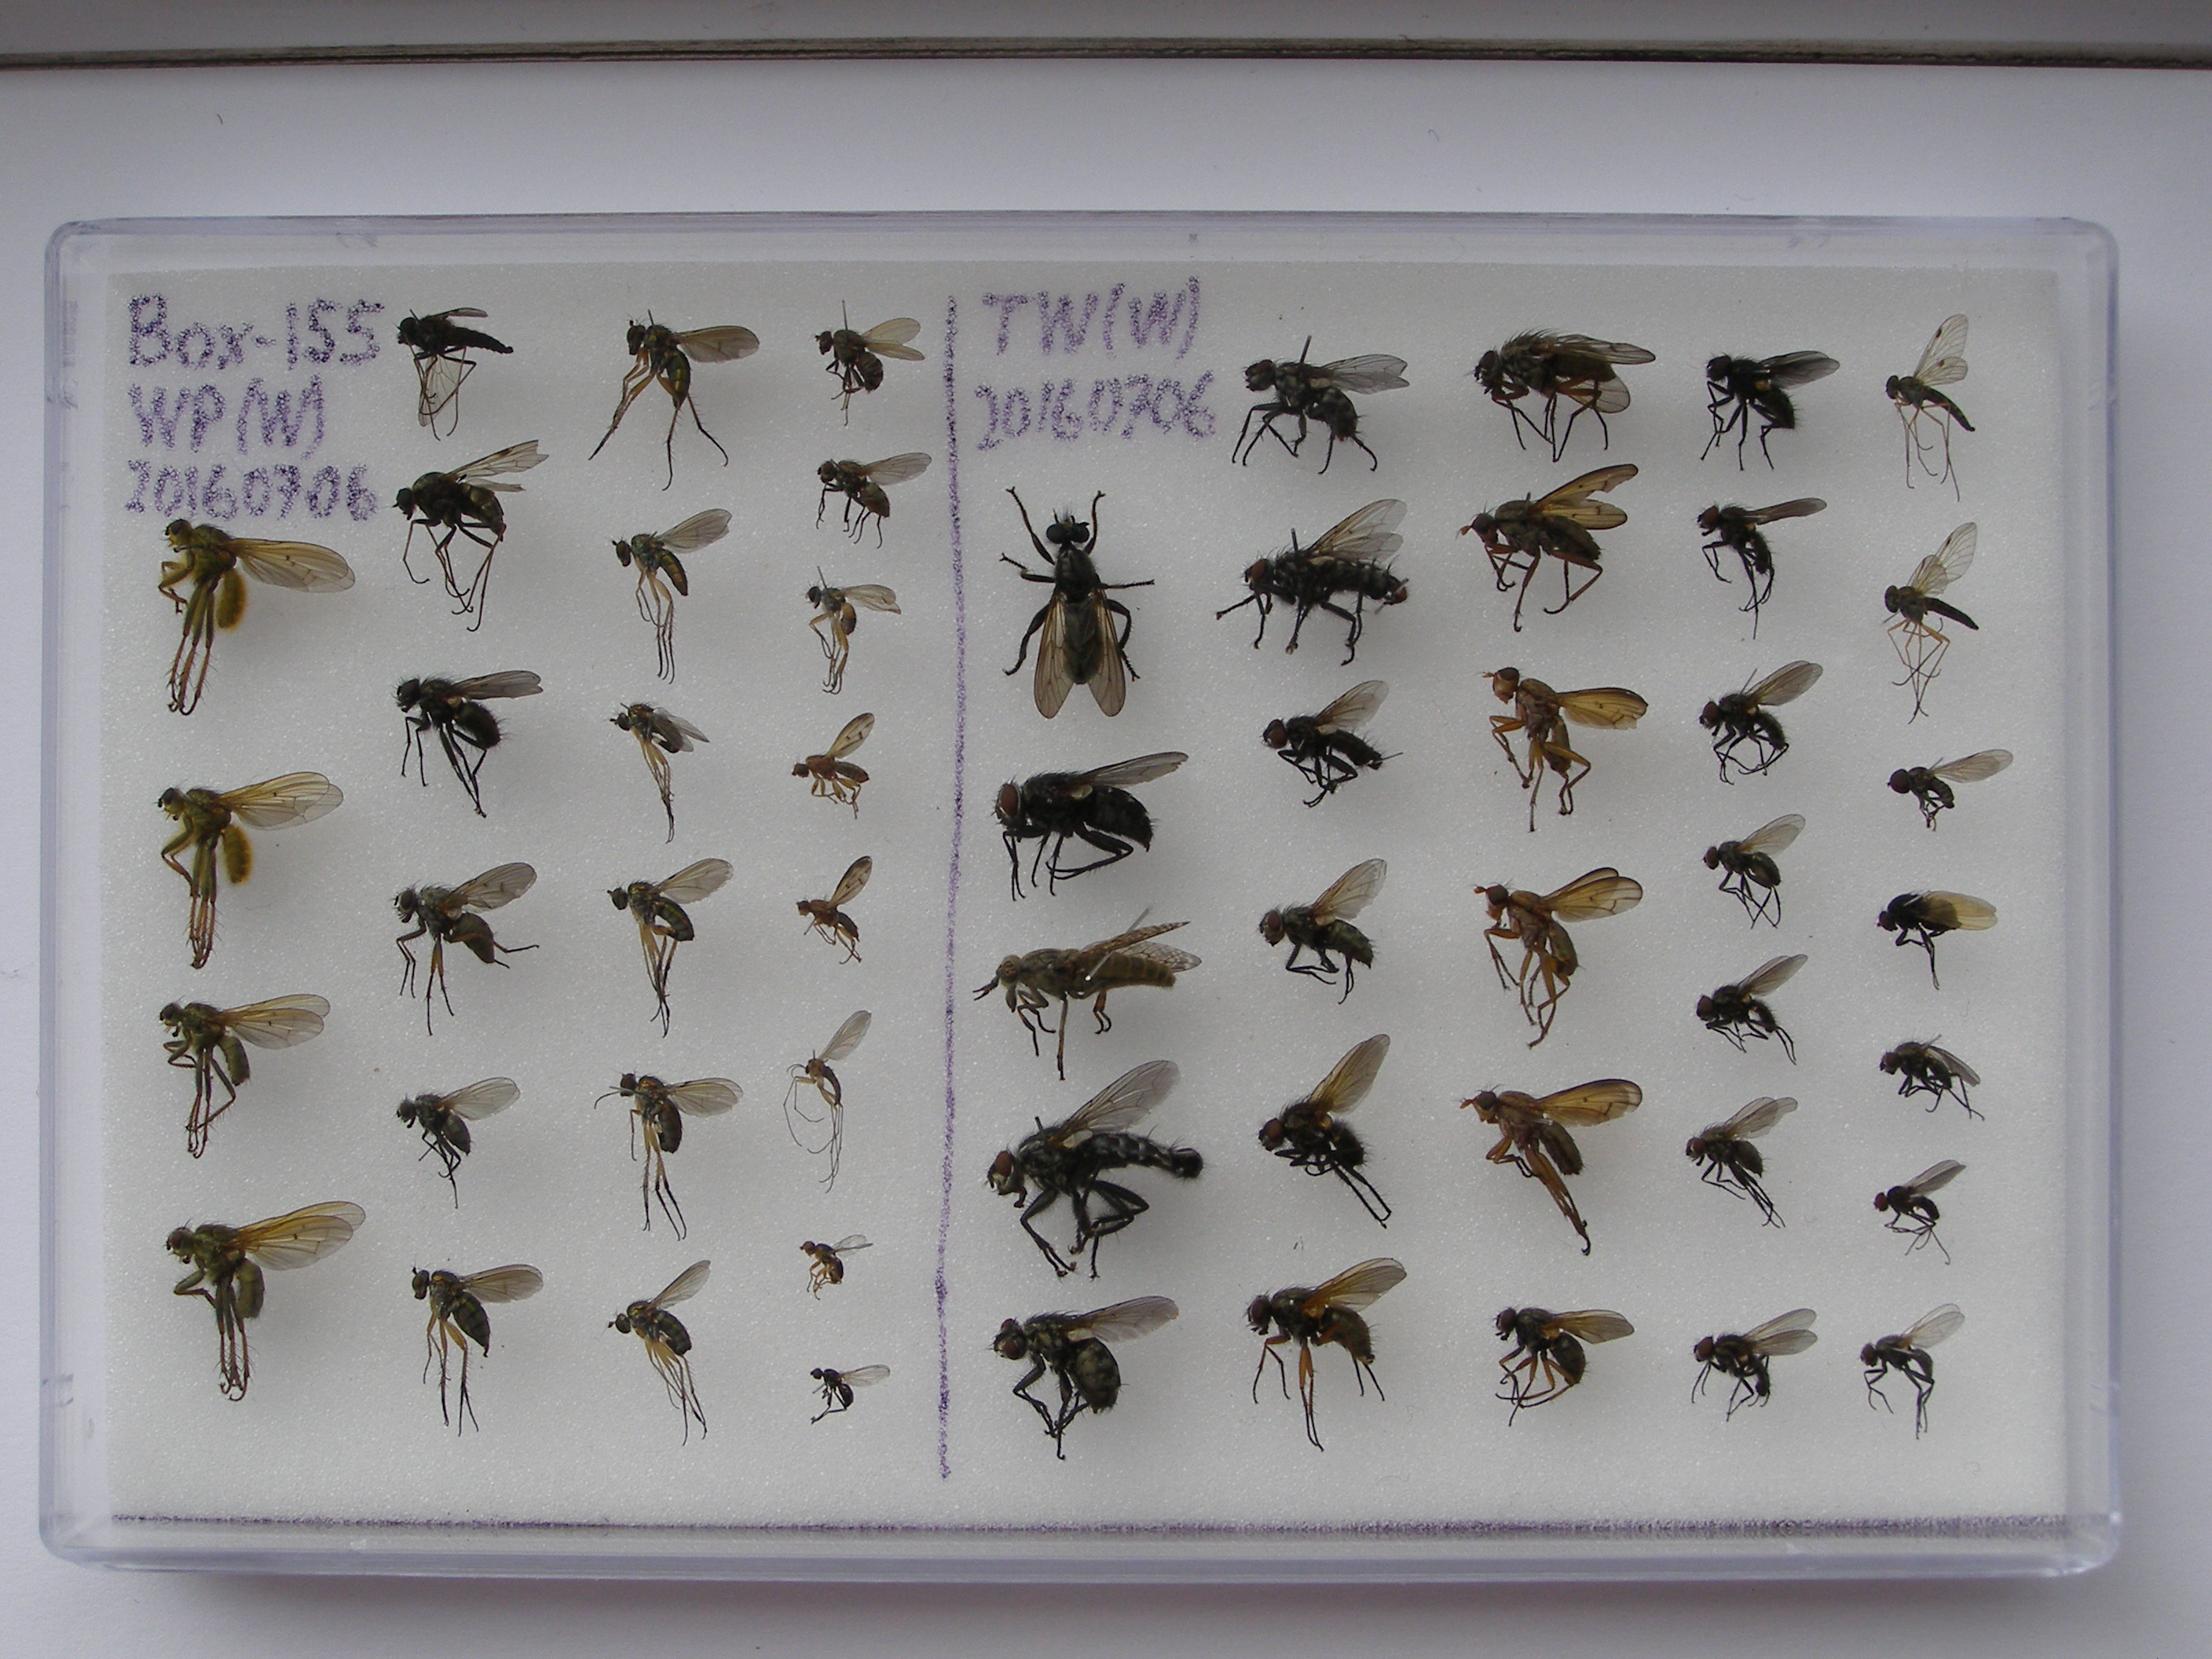 Box-155
WP(W)
20160706
TW(W)
20160706